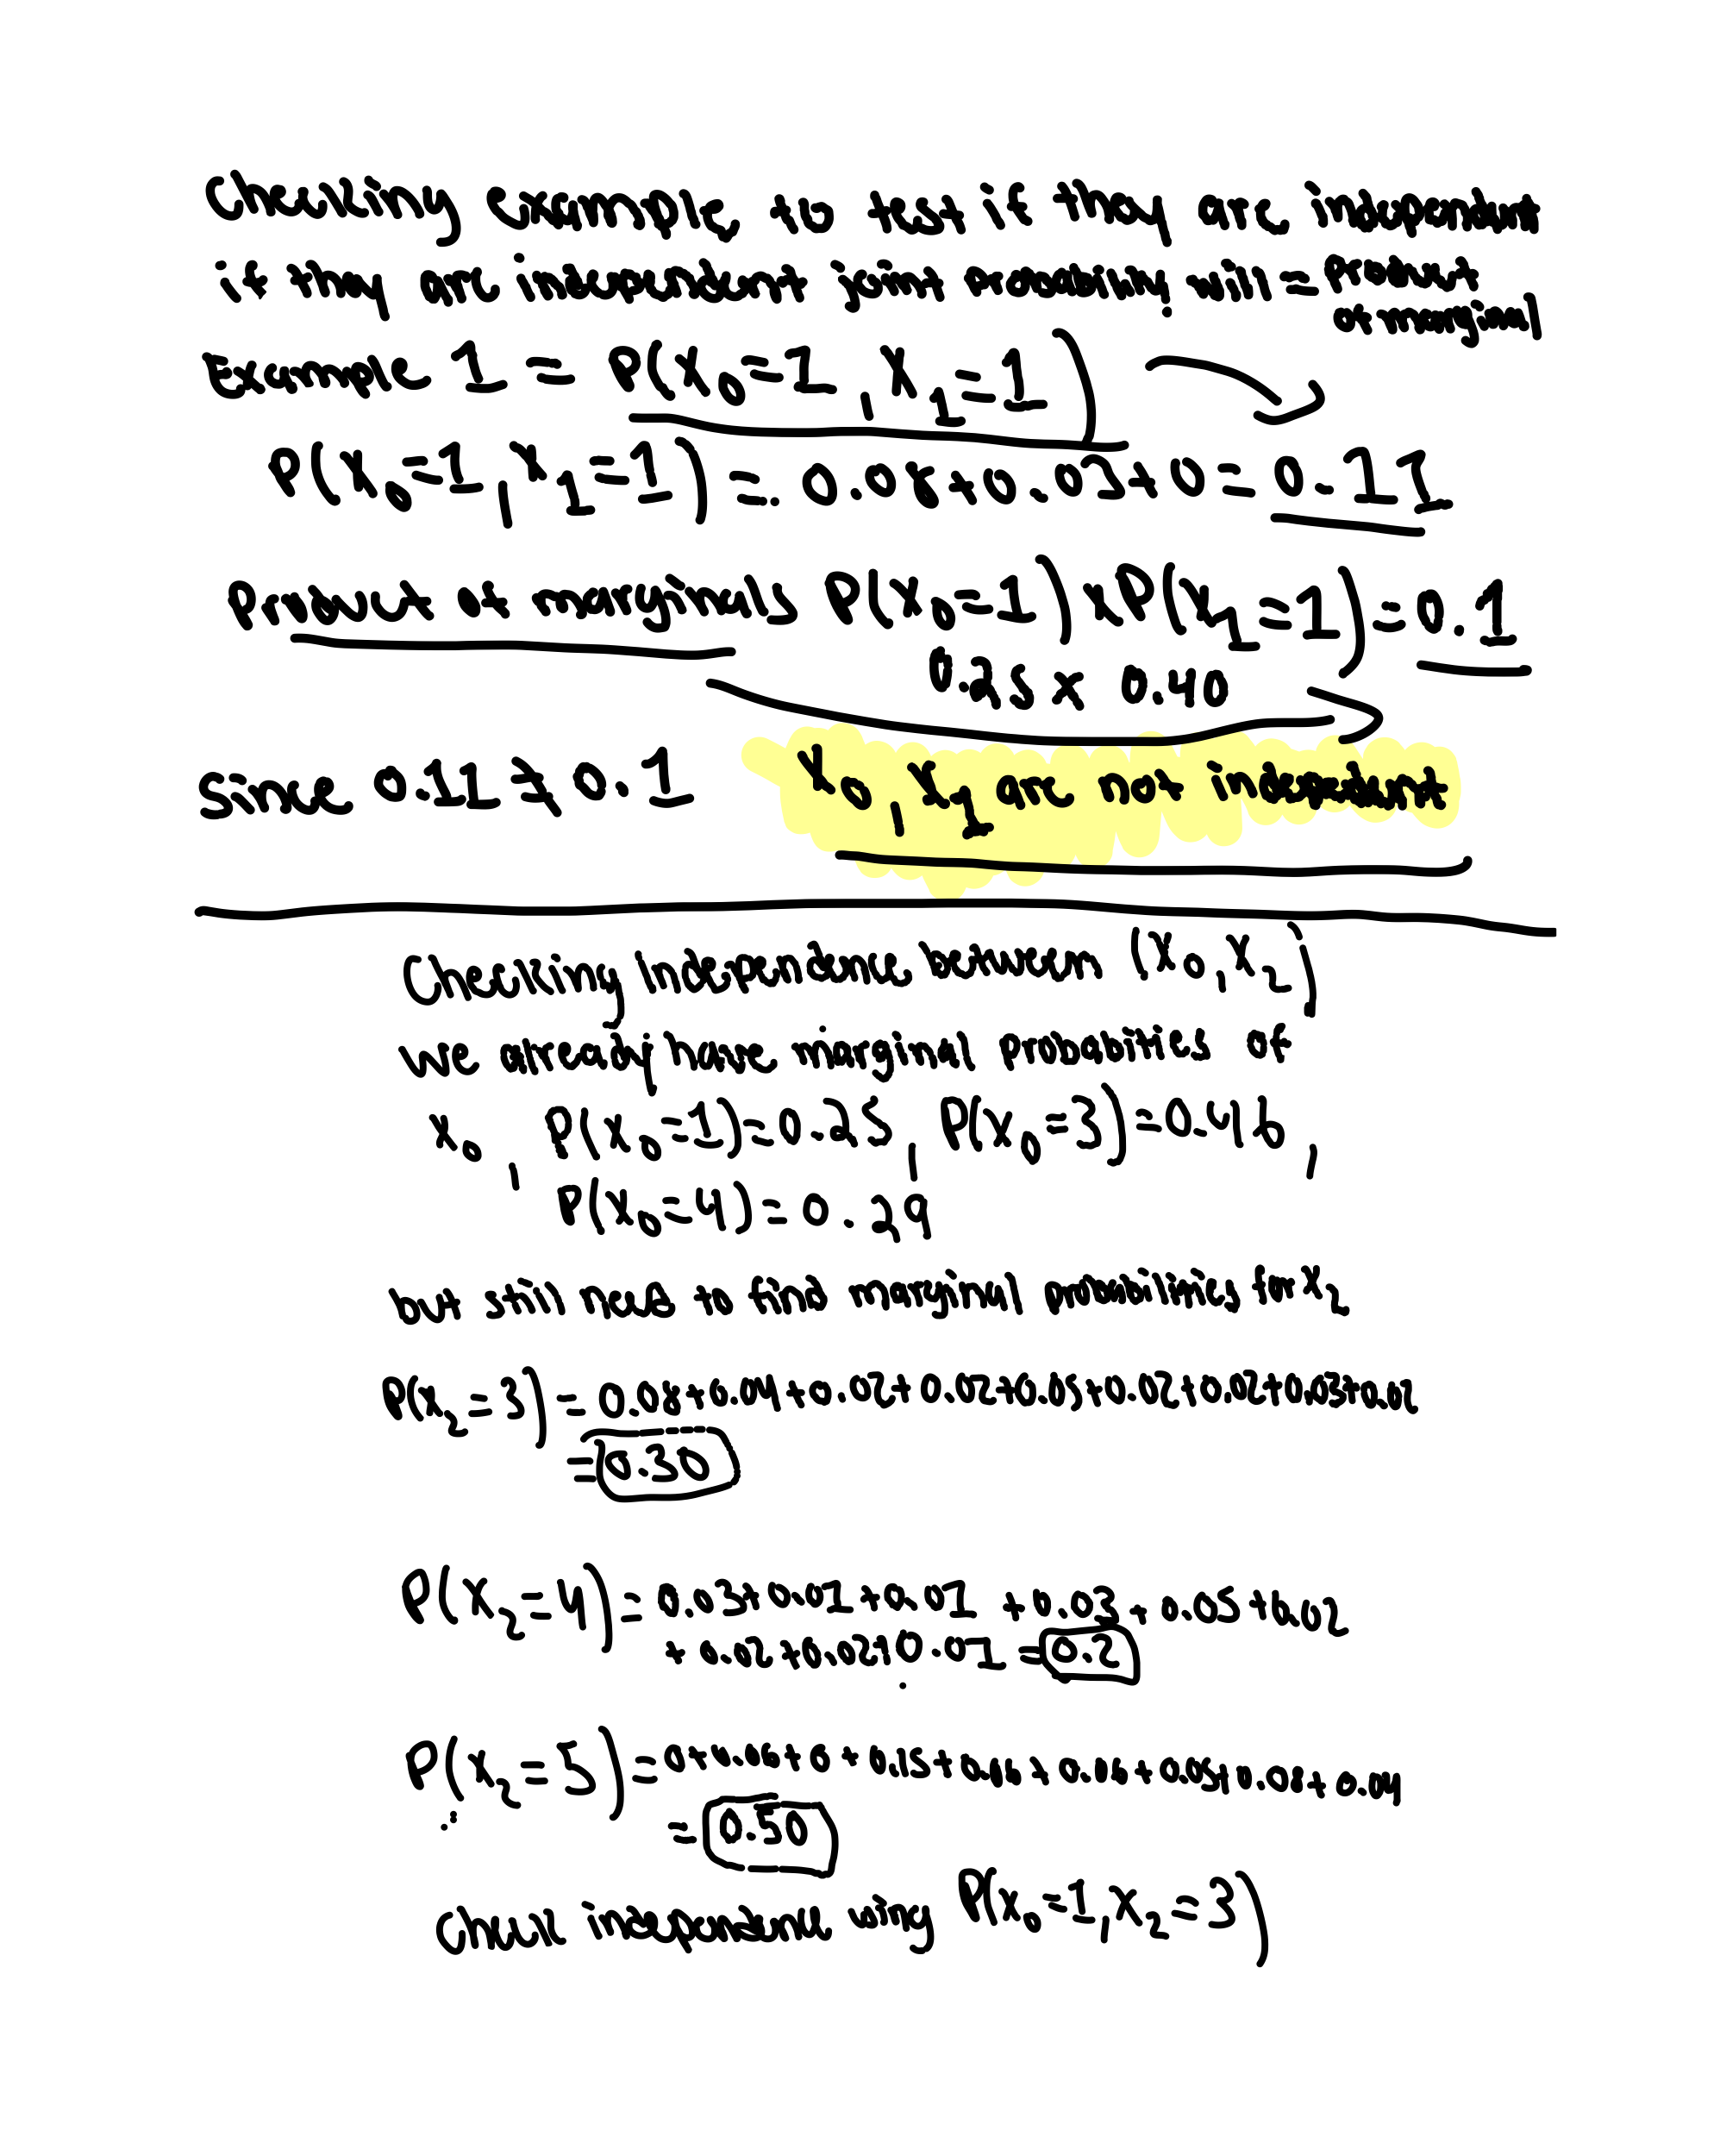 Checking example to test if they are independent
if they are independent joint probability will = product
of marginal
Example 1 = P(X₀=1, X₁=1)
P(X₀=1, X₁=1) = 0.08+0.03+0=0.11
Product of marginals P(X₀=1)×P(X₁=1)=0.1
0.25 x 0.40
since 0.11≠0.1 X₀, X₁ are not independent
Checking independence between (X₀, X₂)
We already have marginal probabities of
X₀, P(X₀=1)=0.25, P(X₀=3)=0.46,
P(X₀=4)=0.29
but still need to find marginal probabilities for X₂
P(X₂=3)=0.08+0.04+0.02+0.02+0.05+0.02+0.02+0.03+0.02
=0.30
P(X₂=4)=0.03+0.01+0.01+0.03+0.05+0.02
+0.02+0.02+0.01=0.2
P(X₂=5)=0+0.06+0+0.15+0.06+0.06+0.05+0.08+0.04
=0.50
check independence using P(X₀=1, X₂=3)